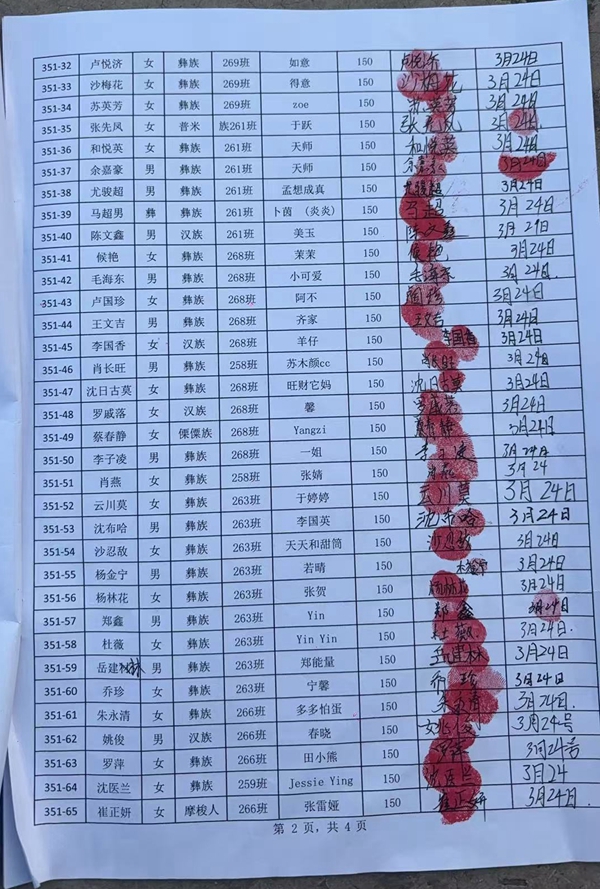 351-32 卢悦济 女 彝族 269班 如意 150 卢悦济 3月24日
351-33 沙梅花 女 彝族 269班 得意 150 沙梅花 3月24日
351-34 苏英芳 女 彝族 269班 zoe 150 苏英芳 3月24日
351-35 张先凤 女 普米 族261班 于跃 150 张先凤 3月24日
351-36 和悦英 女 彝族 261班 天师 150 和悦英 3月24日
351-37 余嘉豪 男 彝族 261班 天师 150 余嘉豪 3月24日
351-38 尤骏超 男 彝族 261班 孟想成真 150 尤骏超 3月24日
351-39 马超男 彝 彝族 261班 卜茵（炎炎） 150 马超 3月24日
351-40 陈文鑫 男 汉族 261班 美玉 150 陈文鑫 3月29日
351-41 候艳 女 彝族 268班 茉茉 150 候艳 3月24日
351-42 毛海东 男 彝族 268班 小可爱 150 毛海东 3月24日
351-43 卢国珍 女 彝族 268班 阿不 150 3月24日
351-44 王文吉 男 彝族 268班 齐家 150 王文吉 3月24日
351-45 李国香 女 汉族 268班 羊仔 150 李国香 3月24日
351-46 肖长旺 男 彝族 258班 苏木颜cc 150 3月24日
351-47 沈日古莫 女 彝族 268班 旺财它妈 150 沈日古莫 3月24日
351-48 罗戚落 女 汉族 268班 馨 150 3月24日
351-49 蔡春静 女 傈僳族 268班 Yangzi 150 3月24日
351-50 李子凌 男 彝族 268班 一姐 150 3月24日
351-51 肖燕 女 彝族 258班 张婧 150 肖燕 3月24
351-52 云川莫 女 彝族 263班 于婷婷 150 云川莫 3月24日
351-53 沈布哈 男 彝族 263班 李国英 150 沈布哈 3月24日
351-54 沙忍敌 女 彝族 263班 天天和甜筒 150 沙忍敌 3月24日
351-55 杨金宁 男 彝族 263班 若晴 150 杨金宁 3月24日
351-56 杨林花 女 彝族 263班 张贺 150 杨林花 3月24日
351-57 郑鑫 男 彝族 263班 Yin 150 郑鑫 3月24日
351-58 杜薇 女 彝族 263班 Yin Yin 150 杜薇 3月24日.
351-59 岳建林 男 彝族 263班 郑能量 150 岳建林 3月24日
351-60 乔珍 女 彝族 263班 宁馨 150 乔珍 3月24日
351-61 朱永清 女 彝族 266班 多多怕蛋 150 朱永清 3月24日.
351-62 姚俊 男 汉族 266班 春晓 150 姚俊 3月24号
351-63 罗萍 女 彝族 266班 田小熊 150 罗萍 3月24号
351-64 沈医兰 女 彝族 259班 Jessie Ying 150 沈医兰 3月24
351-65 崔正妍 女 摩梭人 266班 张雷娅 150 崔正妍 3月24日.
第 2 页，共 4 页